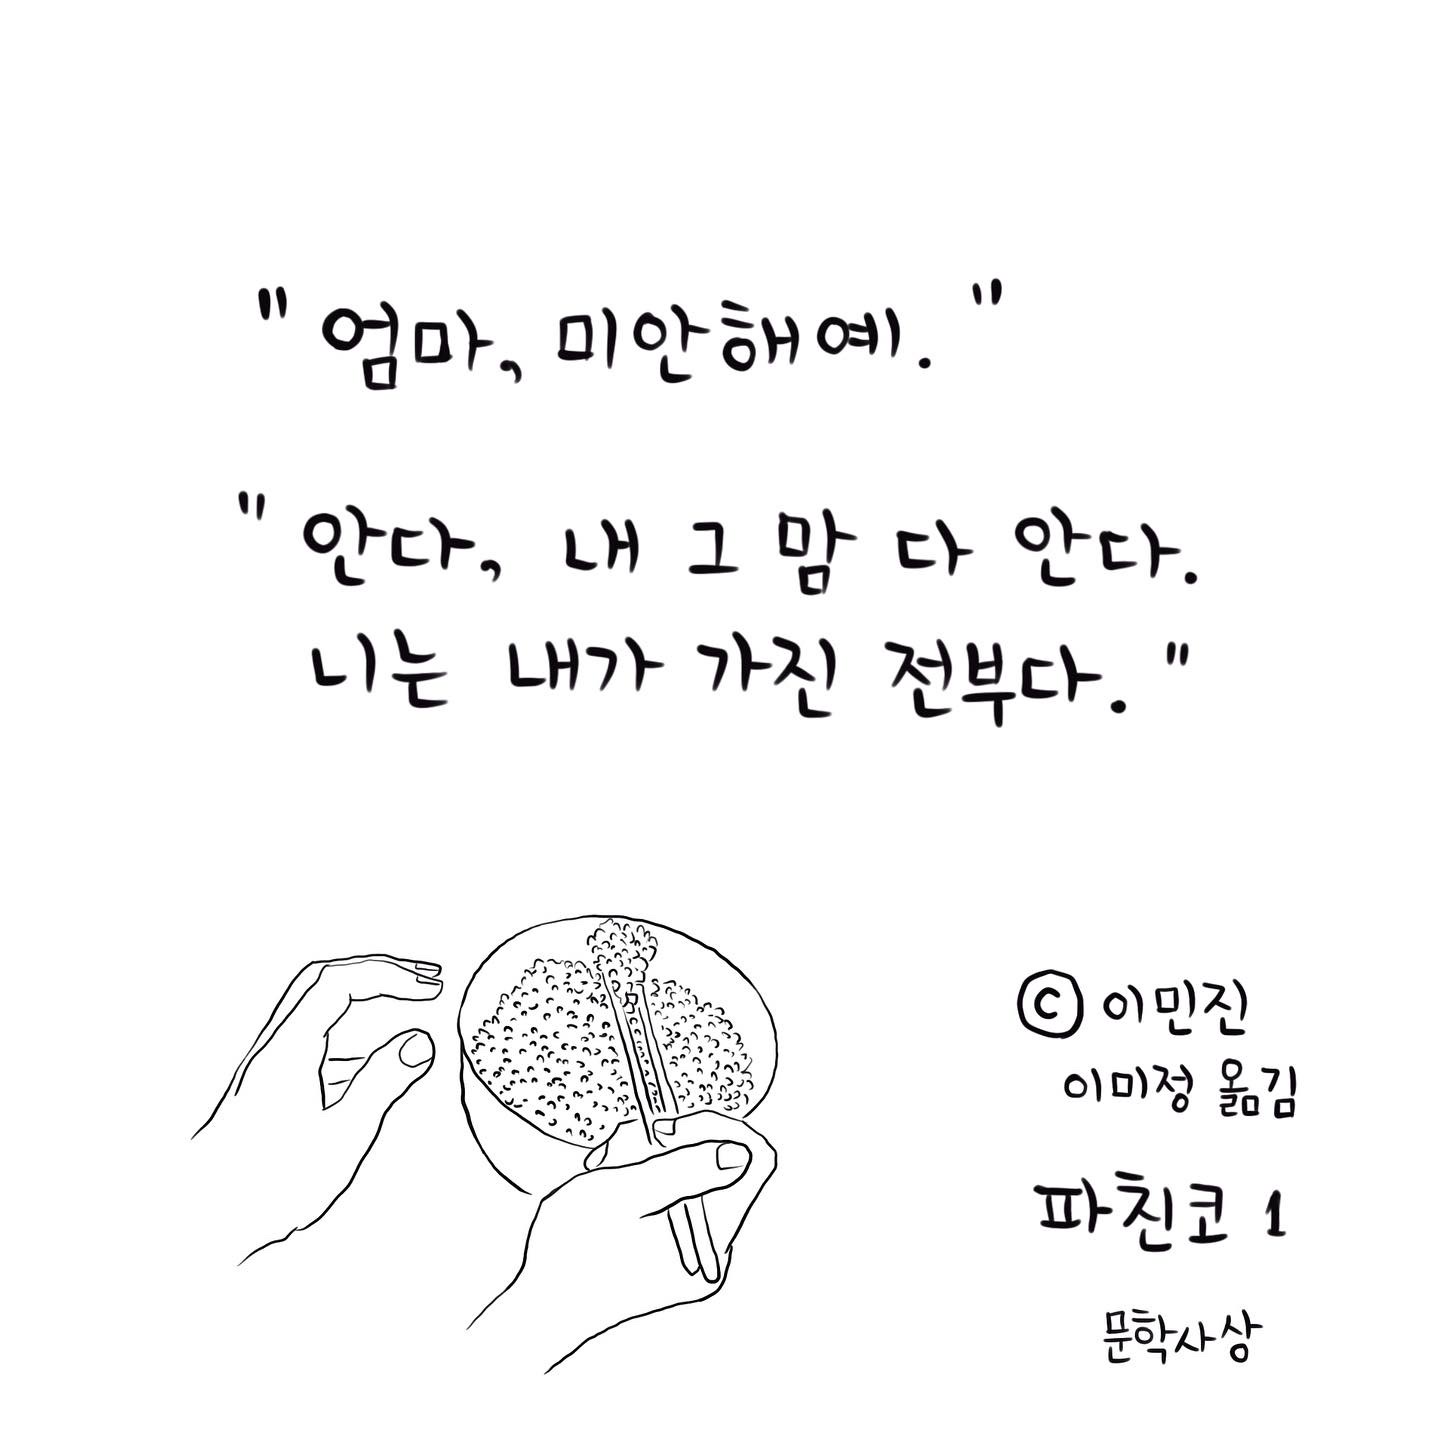 "엄마, 미안해예."
"안다, 내 그 맘 다 안다.
니는 내가 가진 전부다."
ⓒ 이민진
이미정 옮김
파친코 1
문학사상